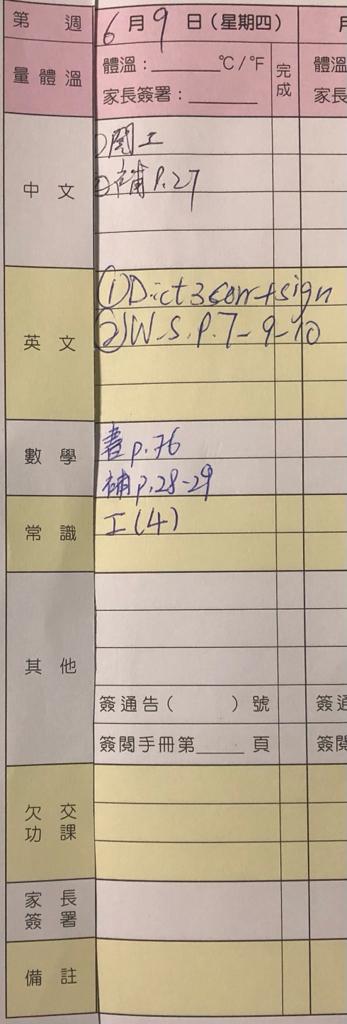 第 週 6月9日(星期四) 月
量體溫 體溫:______°C/°F 完成 體溫
家長簽署:______ 家長
中文 ①閱工
②補P.27
英文 ①Dict 3 corr + sign
②W.S.P.7-9-10
數學 書p.76
補p.28-29
常識 工(4)
其他
簽通告( )號 簽通
簽閱手冊第____頁 簽閱
欠交功課
家長簽署
備註